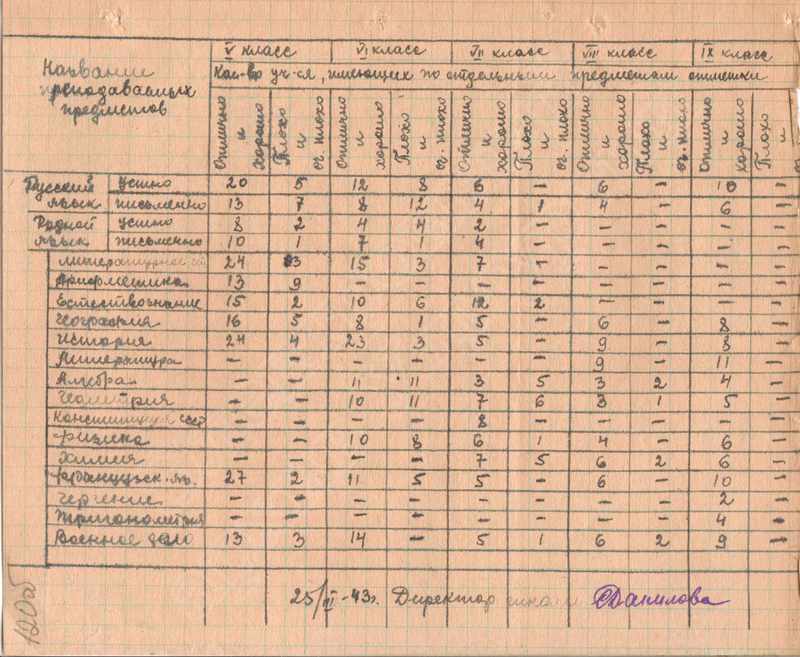 V класс VI класс VII класс VIII класс IX класс
Название преподаваемых предметов
Кол-во уч-ся, имеющих по отдельным предметам отметки
Отлично и хорошо Плохо и оч. плохо Отлично и хорошо Плохо и оч. плохо Отлично и хорошо Плохо и оч. плохо Отлично и хорошо Плохо и оч. плохо Отлично и хорошо Плохо и
Русский язык устно 20 5 12 8 6 – 6 – 10 –
письменно 13 7 8 12 4 1 4 – 6 –
Родной язык устно 8 2 4 4 2 – – – – –
письменно 10 1 7 1 4 – – – – –
24 3 15 3 7 – – – – –
Арифметика 13 9 – – – – – – – –
Естествознание 15 2 10 6 12 2 – – – –
География 16 5 8 1 5 – 6 – 8 –
История 24 4 23 3 5 – 9 – 8 –
Литература – – – – – – 9 – 11 –
Алгебра – – 11 11 3 5 3 2 4 –
Геометрия – – 10 11 7 6 3 1 5 –
Конституция – – – – 8 – – – – –
Физика – – 10 8 6 1 4 – 6 –
Химия – – – – 7 5 6 2 6 –
Французск. яз. 27 2 11 5 5 – 6 – 10 –
Черчение – – – – – – – – 2 –
Тригонометрия – – – – – – – – 4 –
Военное дело 13 3 14 – 5 1 6 2 9 –
43г. Директор школы Данилова
120об